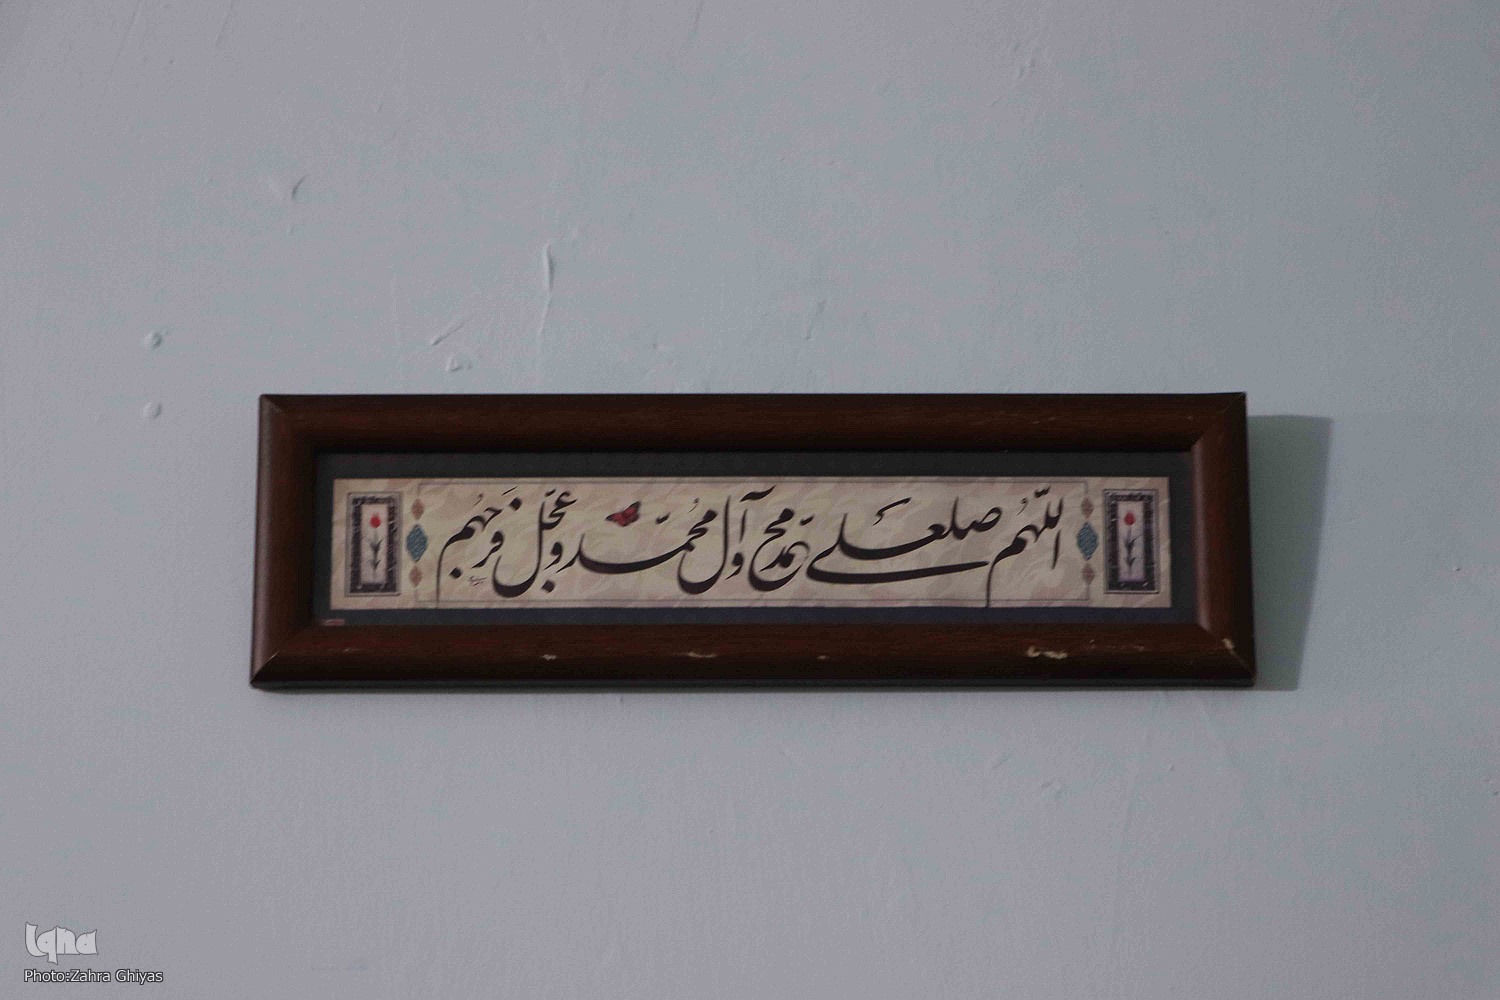 اللهم صل علی محمد و آل محمد و عجل فرجهم
Iqna
Photo:Zahra Ghiyas